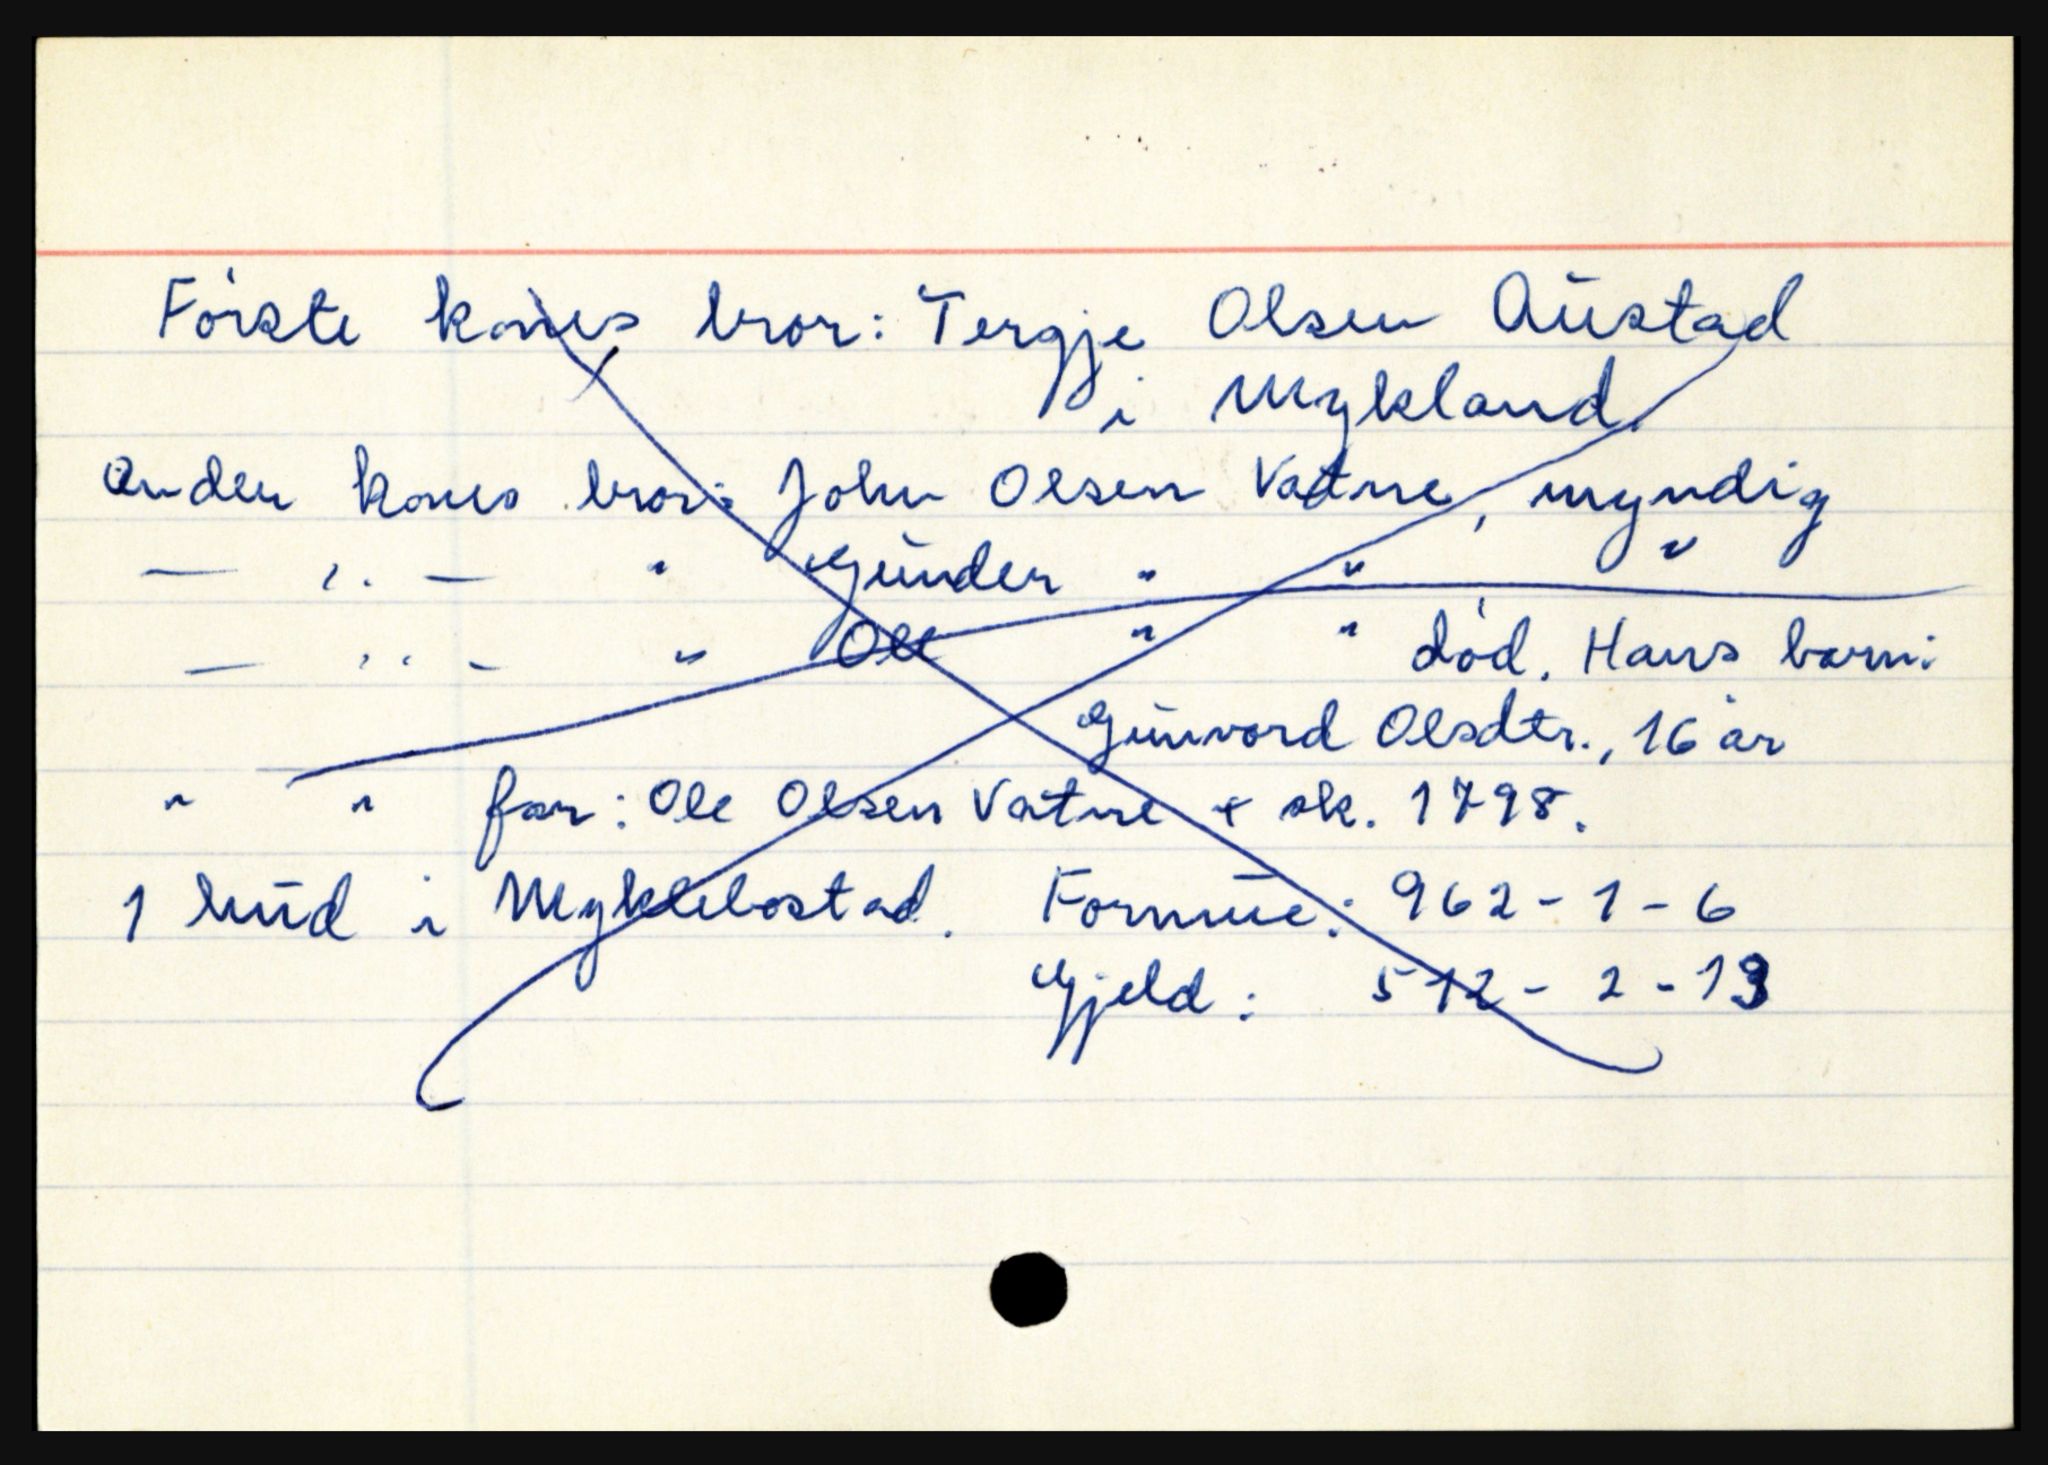 Første kones bror: Tergje Olsen Austad
i Mykland
Anden kones bror: John Olsen Vatne, myndig
— " — " Gunder " " "
— " — " Ole " " død. Hans barn:
Gunvord Olsdtr., 16 år
" " far: Ole Olsen Vatne + sk. 1798.
1 hud i Myklebostad. Formue: 962 - 1 - 6
Gjeld: 512 - 2 - 13